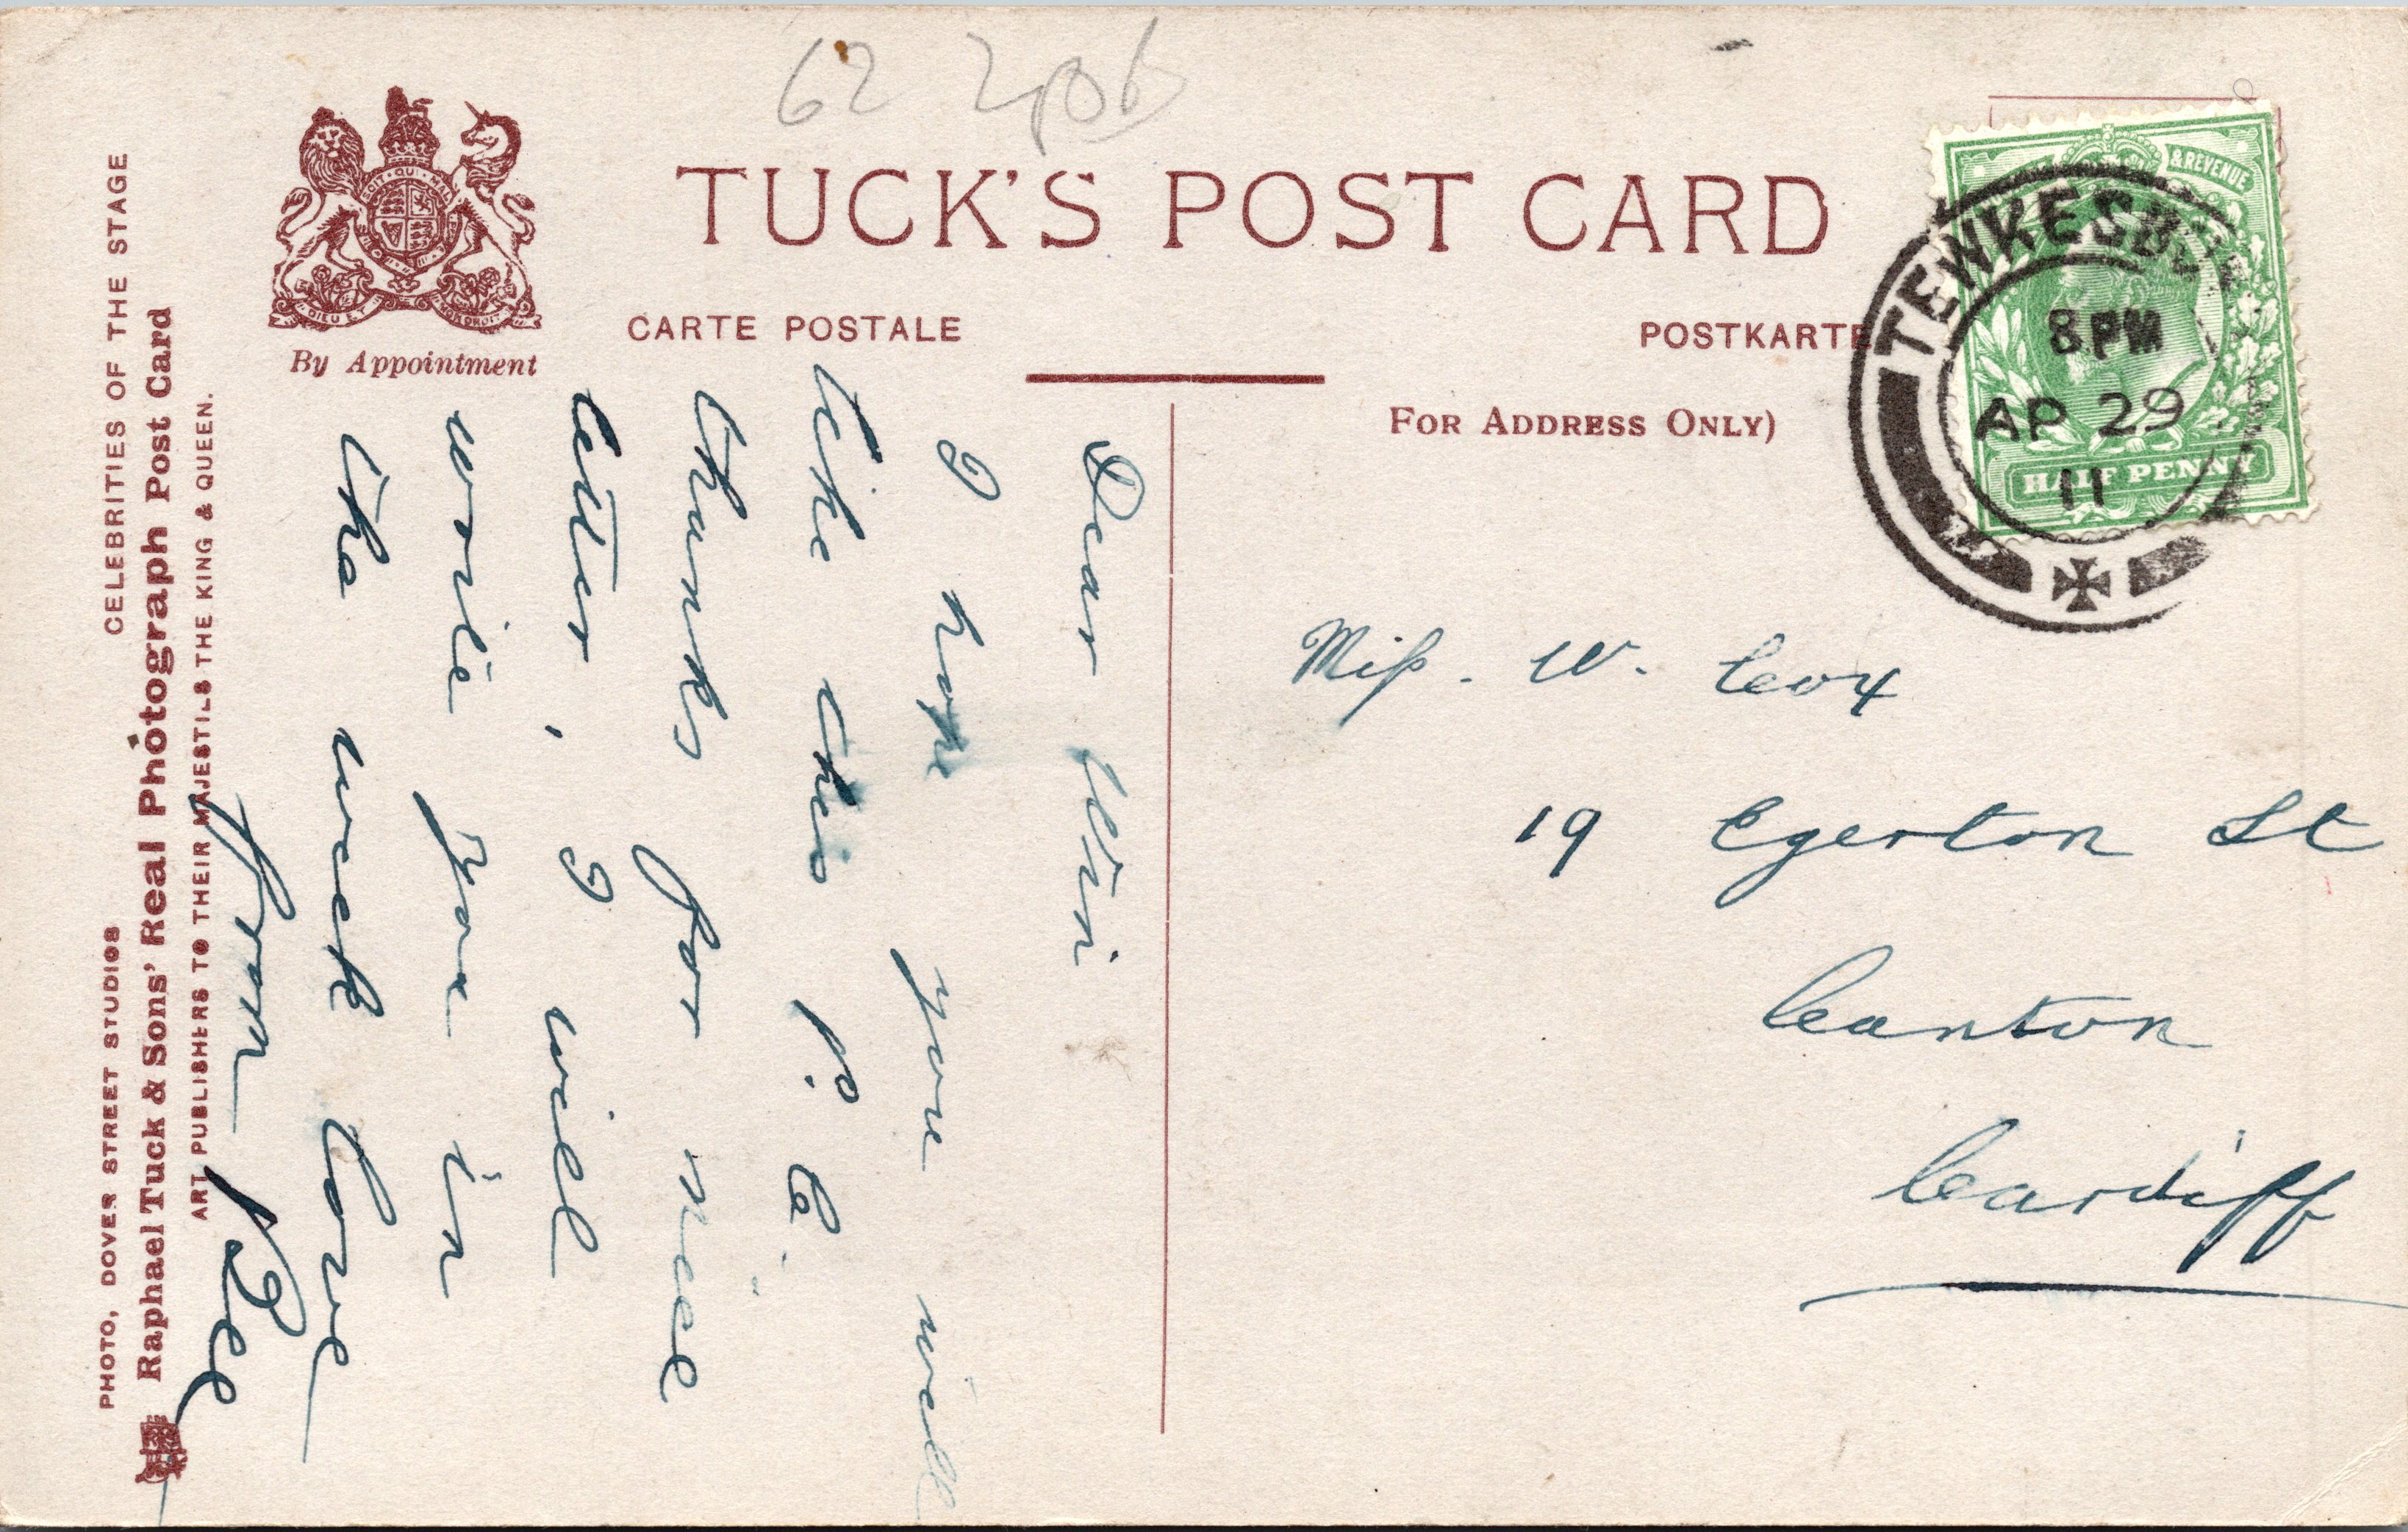 62 2pob
TUCK'S POST CARD
CARTE POSTALE
POSTKARTE
FOR ADDRESS ONLY)
By Appointment
DIEU ET MON DROIT
& REVENUE
HALF PENNY
TEWKESBURY
8 PM
AP 29
11
Miss. W. Cox
19 Egerton St
Canton
Cardiff
Dear Win
I hope you will
like this P.C.
thanks for nice
letter, I will
write you in
the week love
from Nell
CELEBRITIES OF THE STAGE
PHOTO, DOVER STREET STUDIOS
Raphael Tuck & Sons' Real Photograph Post Card
ART PUBLISHERS TO THEIR MAJESTIES THE KING & QUEEN.